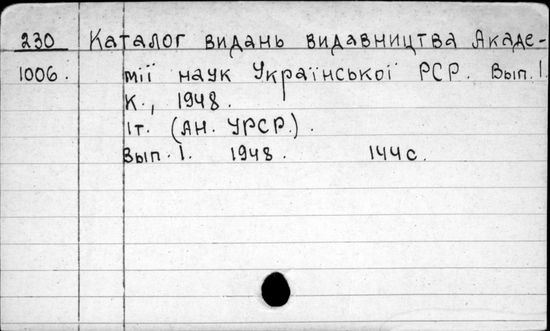 230 Каталог видань видавництва Акаде-
1006. мії наук Української РСР. Вып. 1.
К., 1948.
1т. (АН. УРСР.).
Вып. 1. 1948. 144 с.